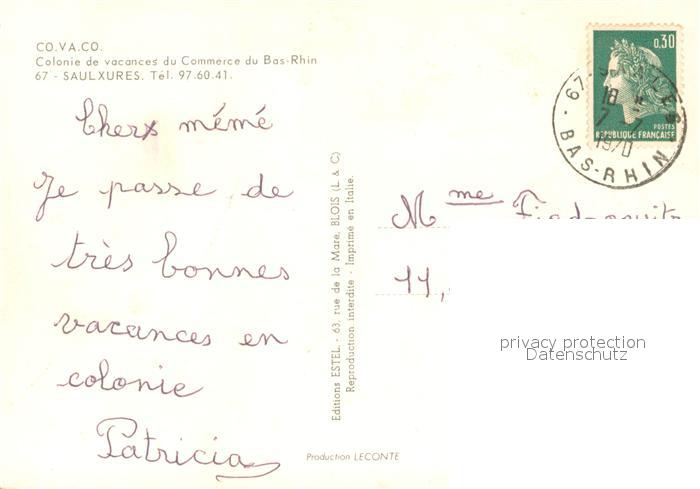 CO.VA.CO.
Colonie de vacances du Commerce du Bas-Rhin
67 - SAULXURES. Tél. 97.60.41.
Cherx mémé
Je passe de
très bonnes
vacances en
colonie
Patricia
Editions ESTEL - 63, rue de la Mare, BLOIS (L & C)
Reproduction interdite - Imprimé en Italie.
Production LECONTE
0,30
POSTES
REPUBLIQUE FRANÇAISE
67
18 H
7 - 7
1970
BAS-RHIN
Mme
11,
privacy protection
Datenschutz